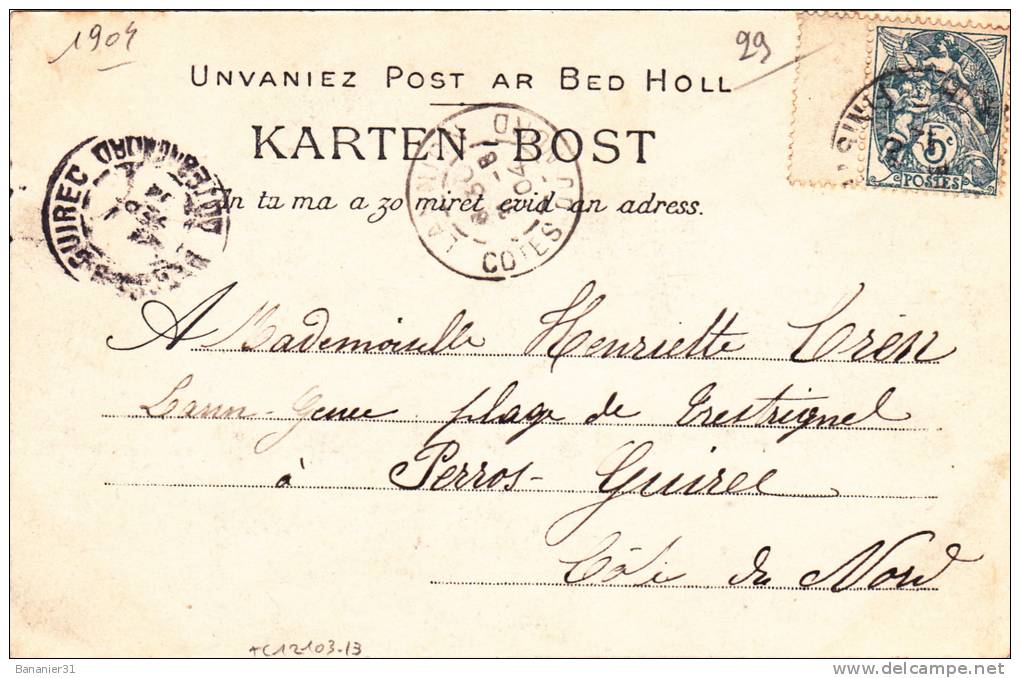 1904
99
UNVANIEZ POST AR BED HOLL
KARTEN-BOST
An tu ma a zo miret evid an adress.
POSTES
5c
GUIREC
COTES DU NORD
04
A Mademoiselle Henriette Crén
Lann- plage de Trestrignel
à Perros-Guirec
Côte du Nord
+C12103-13
Bananier31
delcampe.net